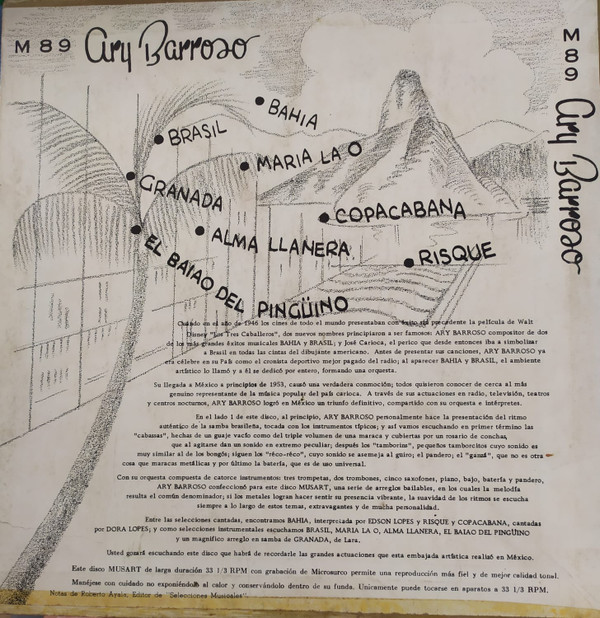 M 89 Ary Barroso
M 89 Ary Barroso
BAHIA
BRASIL
MARIA LA O
GRANADA
COPACABANA
ALMA LLANERA
RISQUE
EL BAIAO DEL PINGÜINO
Cuando en el año de 1946 los cines de todo el mundo presentaban con éxito sin precedente la película de Walt
Disney "Los Tres Caballeros", dos nuevos nombres principiaron a ser famosos: ARY BARROSO compositor de dos
de los más grandes éxitos musicales BAHIA y BRASIL; y José Carioca, el perico que desde entonces iba a simbolizar
a Brasil en todas las cintas del dibujante americano. Antes de presentar sus canciones, ARY BARROSO ya
era célebre en su País como el cronista deportivo mejor pagado del radio; al aparecer BAHIA y BRASIL, el ambiente
artístico lo llamó y a él se dedicó por entero, formando una orquesta.
Su llegada a México a principios de 1953, causó una verdadera conmoción; todos quisieron conocer de cerca al más
genuino representante de la música popular del país carioca. A través de sus actuaciones en radio, televisión, teatros
y centros nocturnos, ARY BARROSO logró en México un triunfo definitivo, compartido con su orquesta e intérpretes.
En el lado 1 de este disco, al principio, ARY BARROSO personalmente hace la presentación del ritmo
auténtico de la samba brasileña, tocada con los instrumentos típicos; y así vamos escuchando en primer término las
"cabasas", hechas de un guaje vacío como del triple volumen de una maraca y cubiertas por un rosario de conchas,
que al agitarse dan un sonido en extremo peculiar; después los "tamborins", pequeños tamborcitos cuyo sonido es
muy similar al de los bongós; siguen los "rêco-rêco", cuyo sonido se asemeja al güiro; el pandero; el "gansá", que no es otra
cosa que maracas metálicas y por último la batería, que es de uso universal.
Con su orquesta compuesta de catorce instrumentos: tres trompetas, dos trombones, cinco saxofones, piano, bajo, batería y pandero,
ARY BARROSO confeccionó para este disco MUSART, una serie de arreglos bailables, en los cuales la melodía
resulta el común denominador; si los metales logran hacer sentir su presencia vibrante, la suavidad de los ritmos se escucha
siempre a lo largo de estos temas, extravagantes y de mucha personalidad.
Entre las selecciones cantadas, encontramos BAHIA, interpretada por EDSON LOPES y RISQUE y COPACABANA, cantadas
por DORA LOPES; y como selecciones instrumentales escuchamos BRASIL, MARIA LA O, ALMA LLANERA, EL BAIAO DEL PINGÜINO
y un magnífico arreglo en samba de GRANADA, de Lara.
Usted gozará escuchando este disco que habrá de recordarle las grandes actuaciones que esta embajada artística realizó en México.
Este disco MUSART de larga duración 33 1/3 RPM con grabación de Microsurco permite una reproducción más fiel y de mejor calidad tonal.
Manéjese con cuidado no exponiéndolo al calor y conservándolo dentro de su funda. Unicamente puede tocarse en aparatos a 33 1/3 RPM.
Notas de Roberto Ayala, Editor de "Selecciones Musicales".